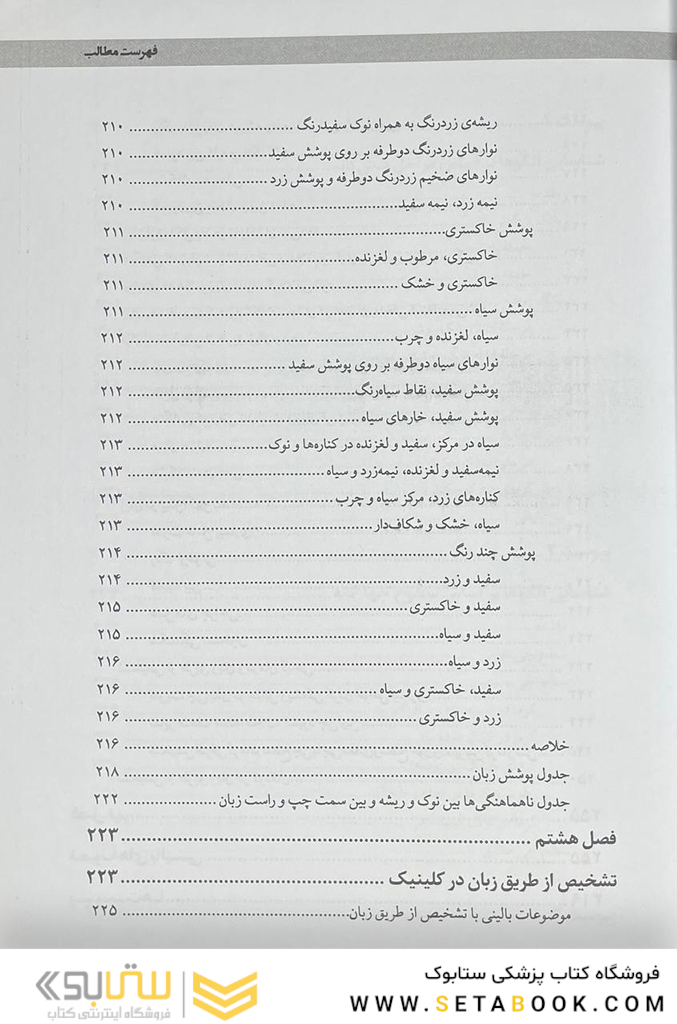 فهرست مطالب
ریشه‌ی زردرنگ به همراه نوک سفیدرنگ ........................................ ۲۱۰
نوارهای زردرنگ دوطرفه بر روی پوشش سفید .................................... ۲۱۰
نوارهای ضخیم زردرنگ دوطرفه و پوشش زرد .................................... ۲۱۰
نیمه زرد، نیمه سفید ........................................ ۲۱۰
پوشش خاکستری ........................................ ۲۱۱
خاکستری، مرطوب و لغزنده ........................................ ۲۱۱
خاکستری و خشک ........................................ ۲۱۱
پوشش سیاه ........................................ ۲۱۱
سیاه، لغزنده و چرب ........................................ ۲۱۲
نوارهای سیاه دوطرفه بر روی پوشش سفید ........................................ ۲۱۲
پوشش سفید، نقاط سیاه‌رنگ ........................................ ۲۱۲
پوشش سفید، خارهای سیاه ........................................ ۲۱۲
سیاه در مرکز، سفید و لغزنده در کناره‌ها و نوک ........................................ ۲۱۳
نیمه‌سفید و لغزنده، نیمه‌زرد و سیاه ........................................ ۲۱۳
کناره‌های زرد، مرکز سیاه و چرب ........................................ ۲۱۳
سیاه، خشک و شکاف‌دار ........................................ ۲۱۳
پوشش چند رنگ ........................................ ۲۱۴
سفید و زرد ........................................ ۲۱۴
سفید و خاکستری ........................................ ۲۱۵
سفید و سیاه ........................................ ۲۱۵
زرد و سیاه ........................................ ۲۱۶
سفید، خاکستری و سیاه ........................................ ۲۱۶
زرد و خاکستری ........................................ ۲۱۶
خلاصه ........................................ ۲۱۶
جدول پوشش زبان ........................................ ۲۱۸
جدول ناهماهنگی‌ها بین نوک و ریشه و بین سمت چپ و راست زبان .................... ۲۲۲
فصل هشتم ........................................ ۲۲۳
تشخیص از طریق زبان در کلینیک ........................................ ۲۲۳
موضوعات بالینی با تشخیص از طریق زبان ........................................ ۲۲۵
فروشگاه کتاب پزشکی ستابوک
WWW.SETABOOK.COM
ستابوک
فروشگاه اینترنتی کتاب